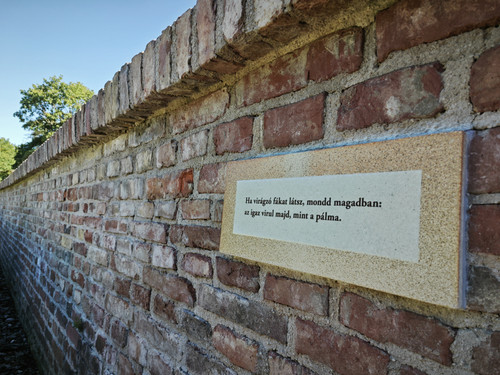 Ha virágzó fákat látsz, mondd magadban:
az igaz virul majd, mint a pálma.